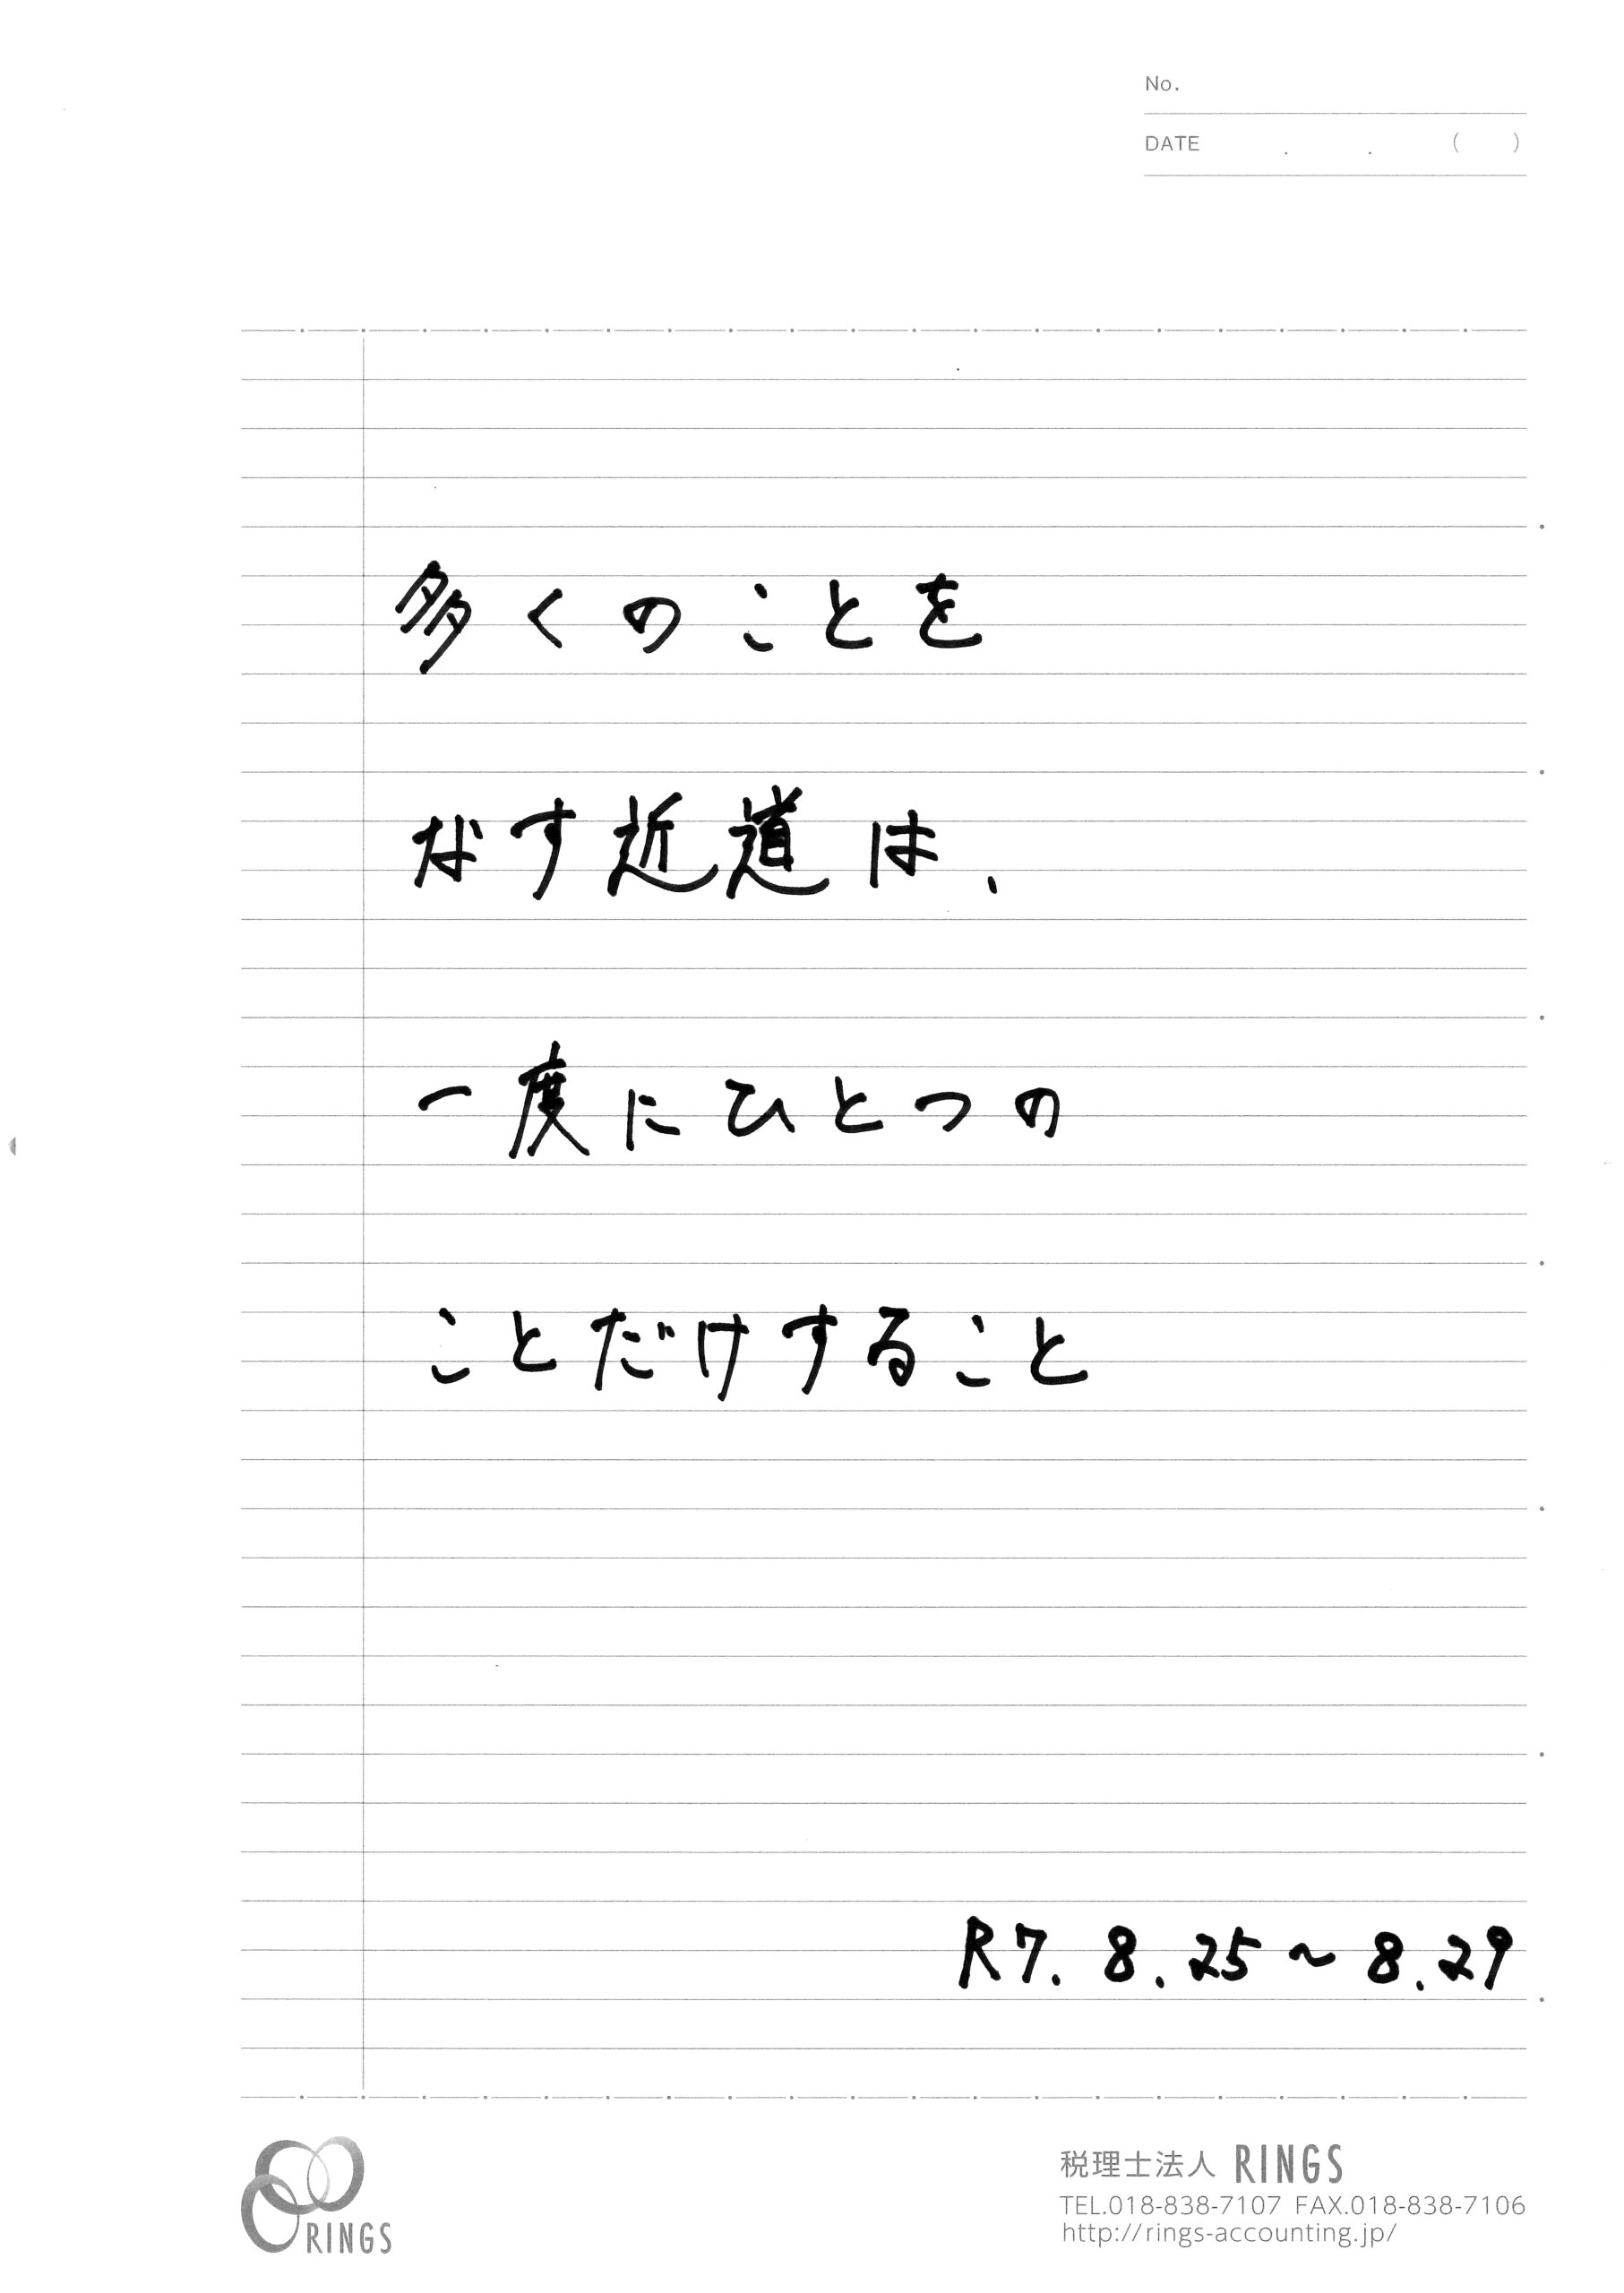 No.
DATE . . ( )
多くのことを
なす近道は、
一度にひとつの
ことだけすること
R7. 8. 25～8. 29
RINGS
税理士法人 RINGS
TEL.018-838-7107 FAX.018-838-7106
http://rings-accounting.jp/